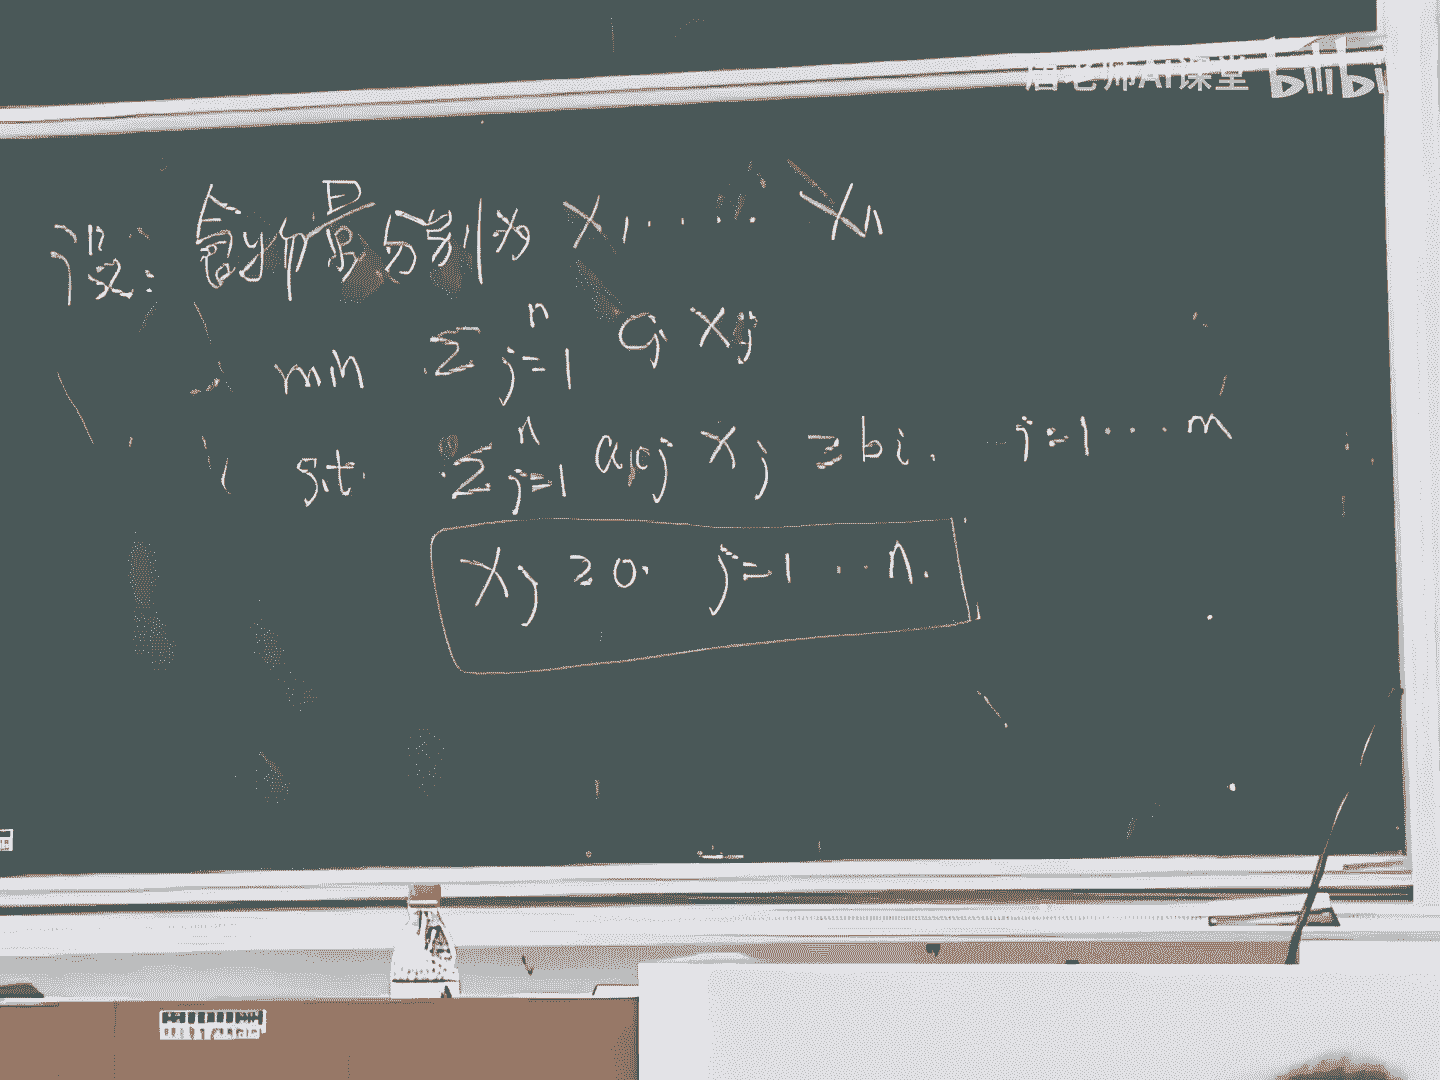 唐老师AI课堂 bilibi
设: 食物量分别为 X₁ ...... Xₙ
min Σ_{j=1}^{n} Cⱼ Xⱼ
s.t. Σ_{j=1}^{n} aᵢⱼ Xⱼ ≥ bᵢ. j=1 ... m
Xⱼ ≥ 0. j=1 ... n.